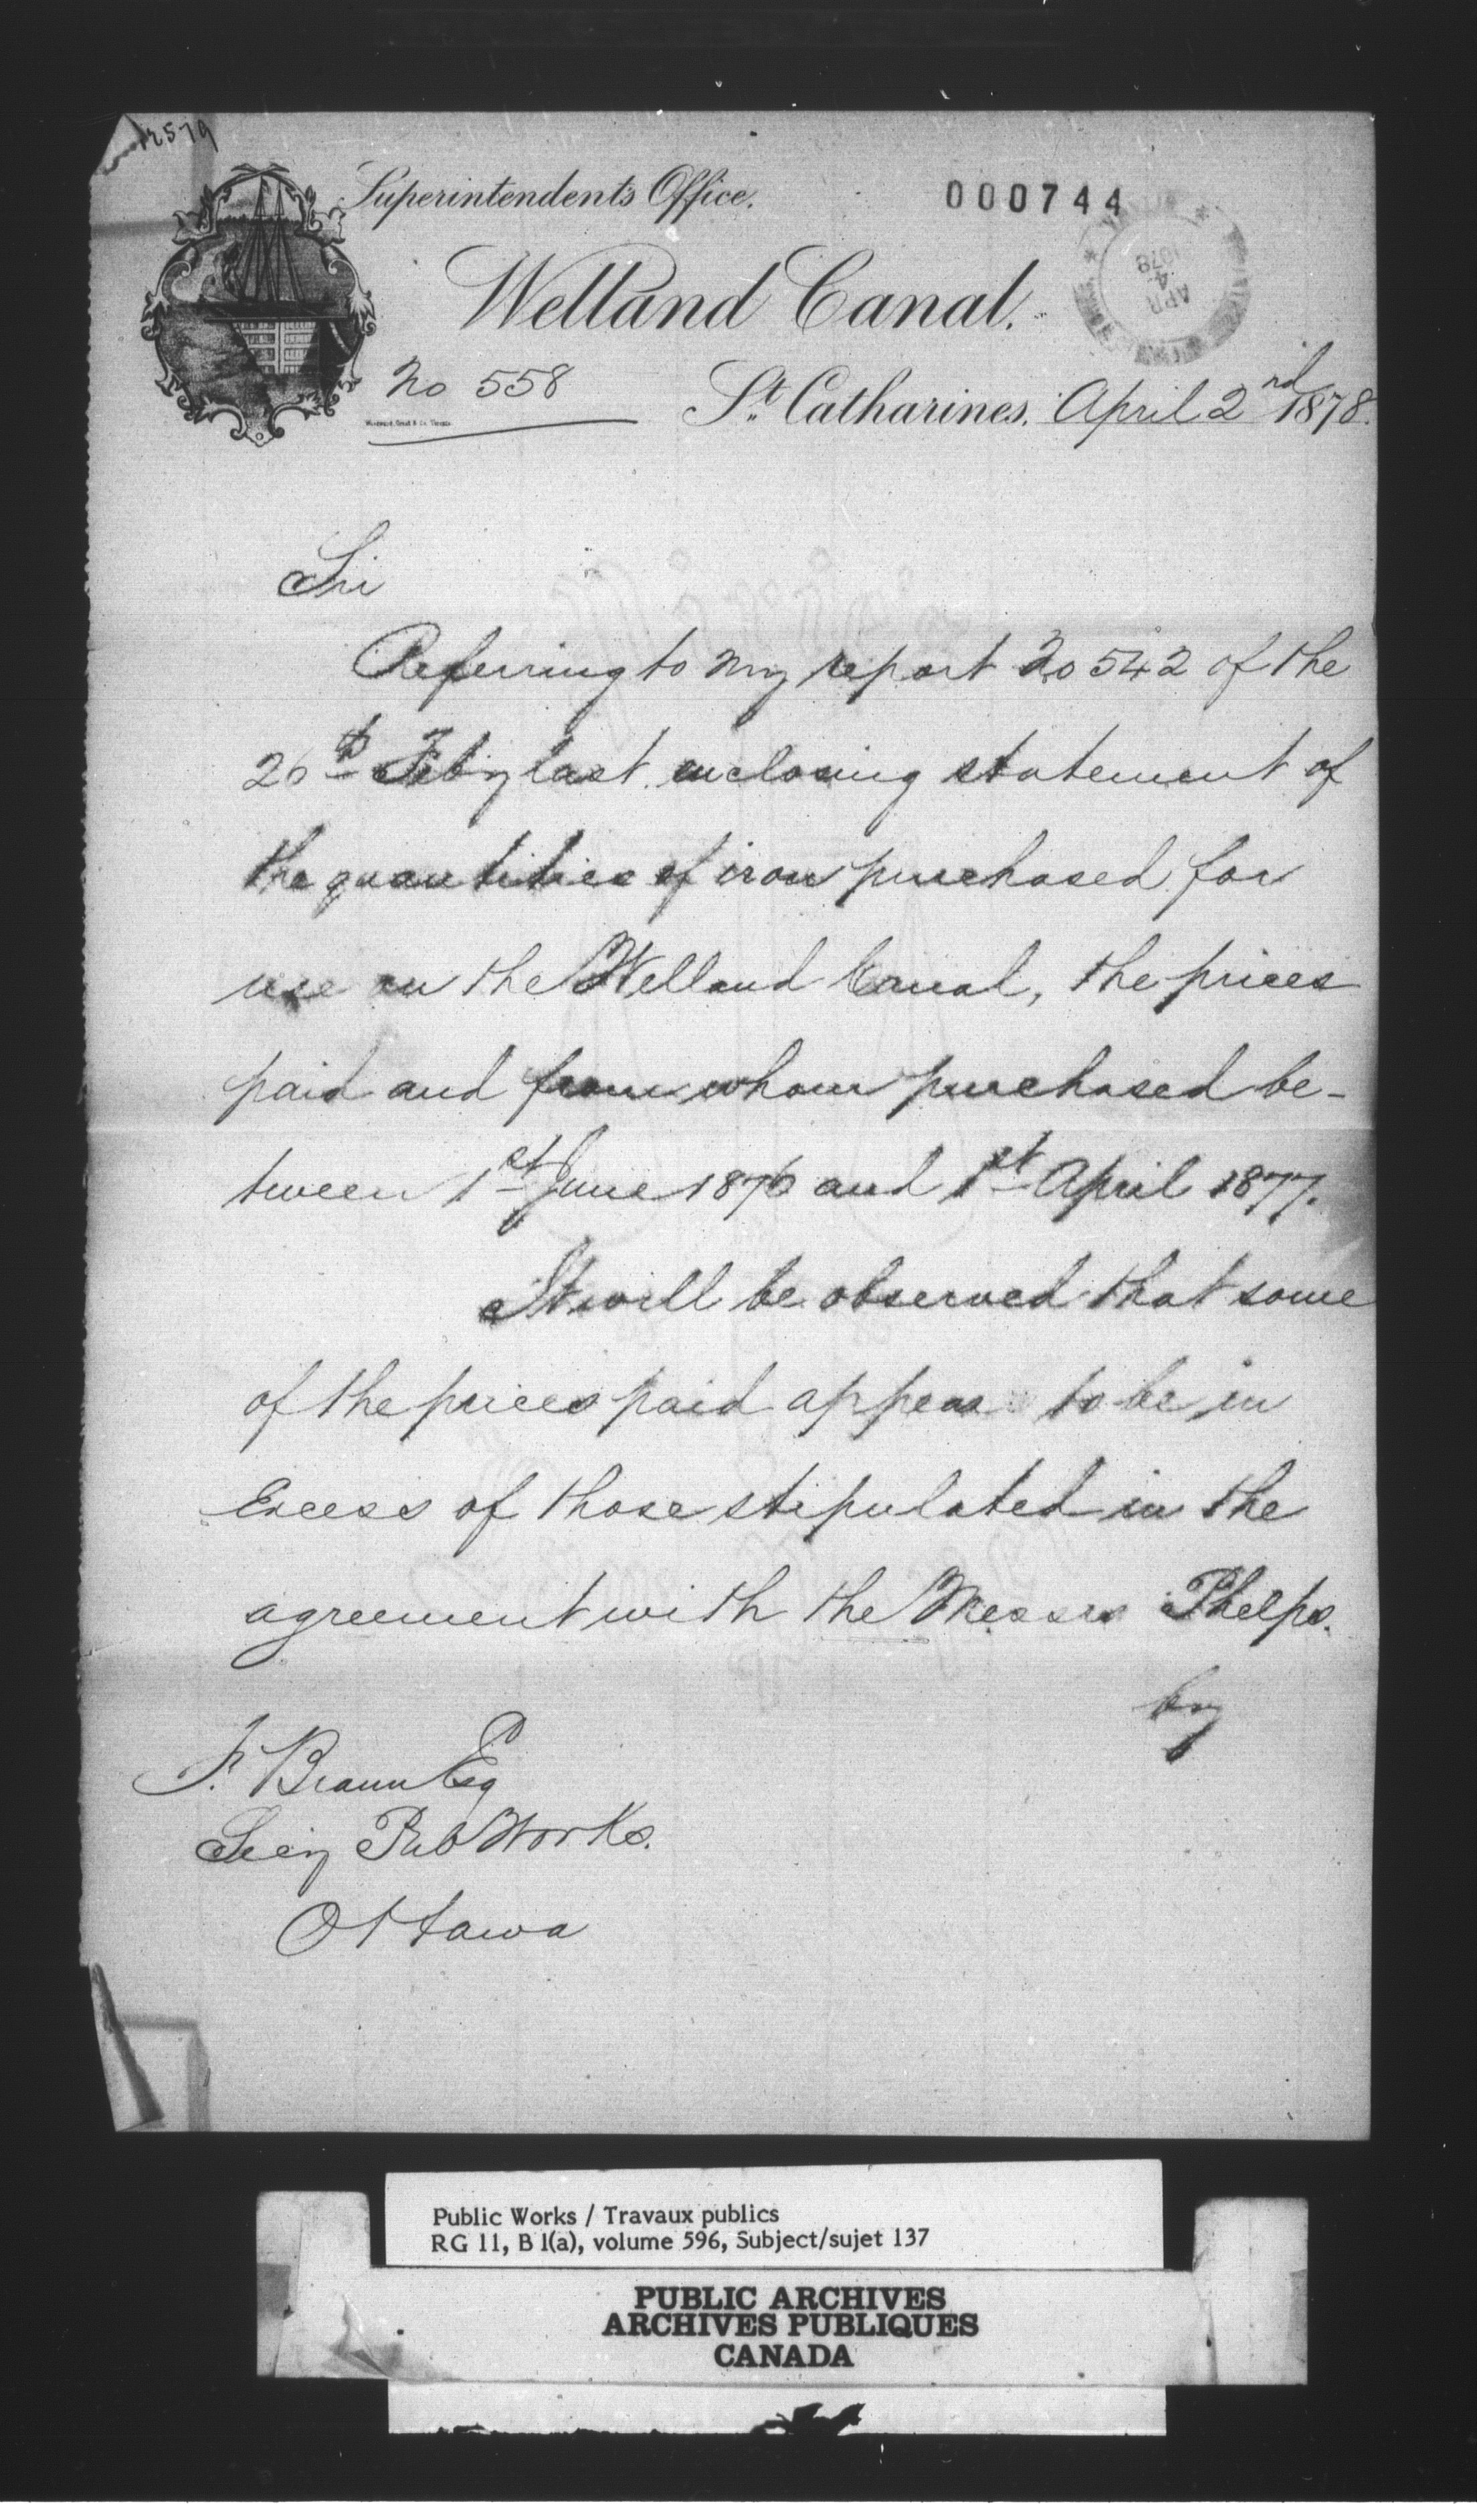 12579
Superintendent's Office.
000744
Welland Canal.
APR
4
1878
No 558
St. Catharines, April 2nd 1878.
Sir
Referring to my report No 542 of the
26th Feby last enclosing statement of
the quantities of iron purchased for
use on the Welland Canal, the prices
paid and from whom purchased be-
tween 1st June 1876 and 1st April 1877.
It will be observed that some
of the prices paid appear to be in
Excess of those stipulated in the
agreement with the Messrs Phelps.
by
F. Braun Esq
Secy Pub Works.
Ottawa
Public Works / Travaux publics
RG 11, B 1(a), volume 596, Subject/sujet 137
PUBLIC ARCHIVES
ARCHIVES PUBLIQUES
CANADA